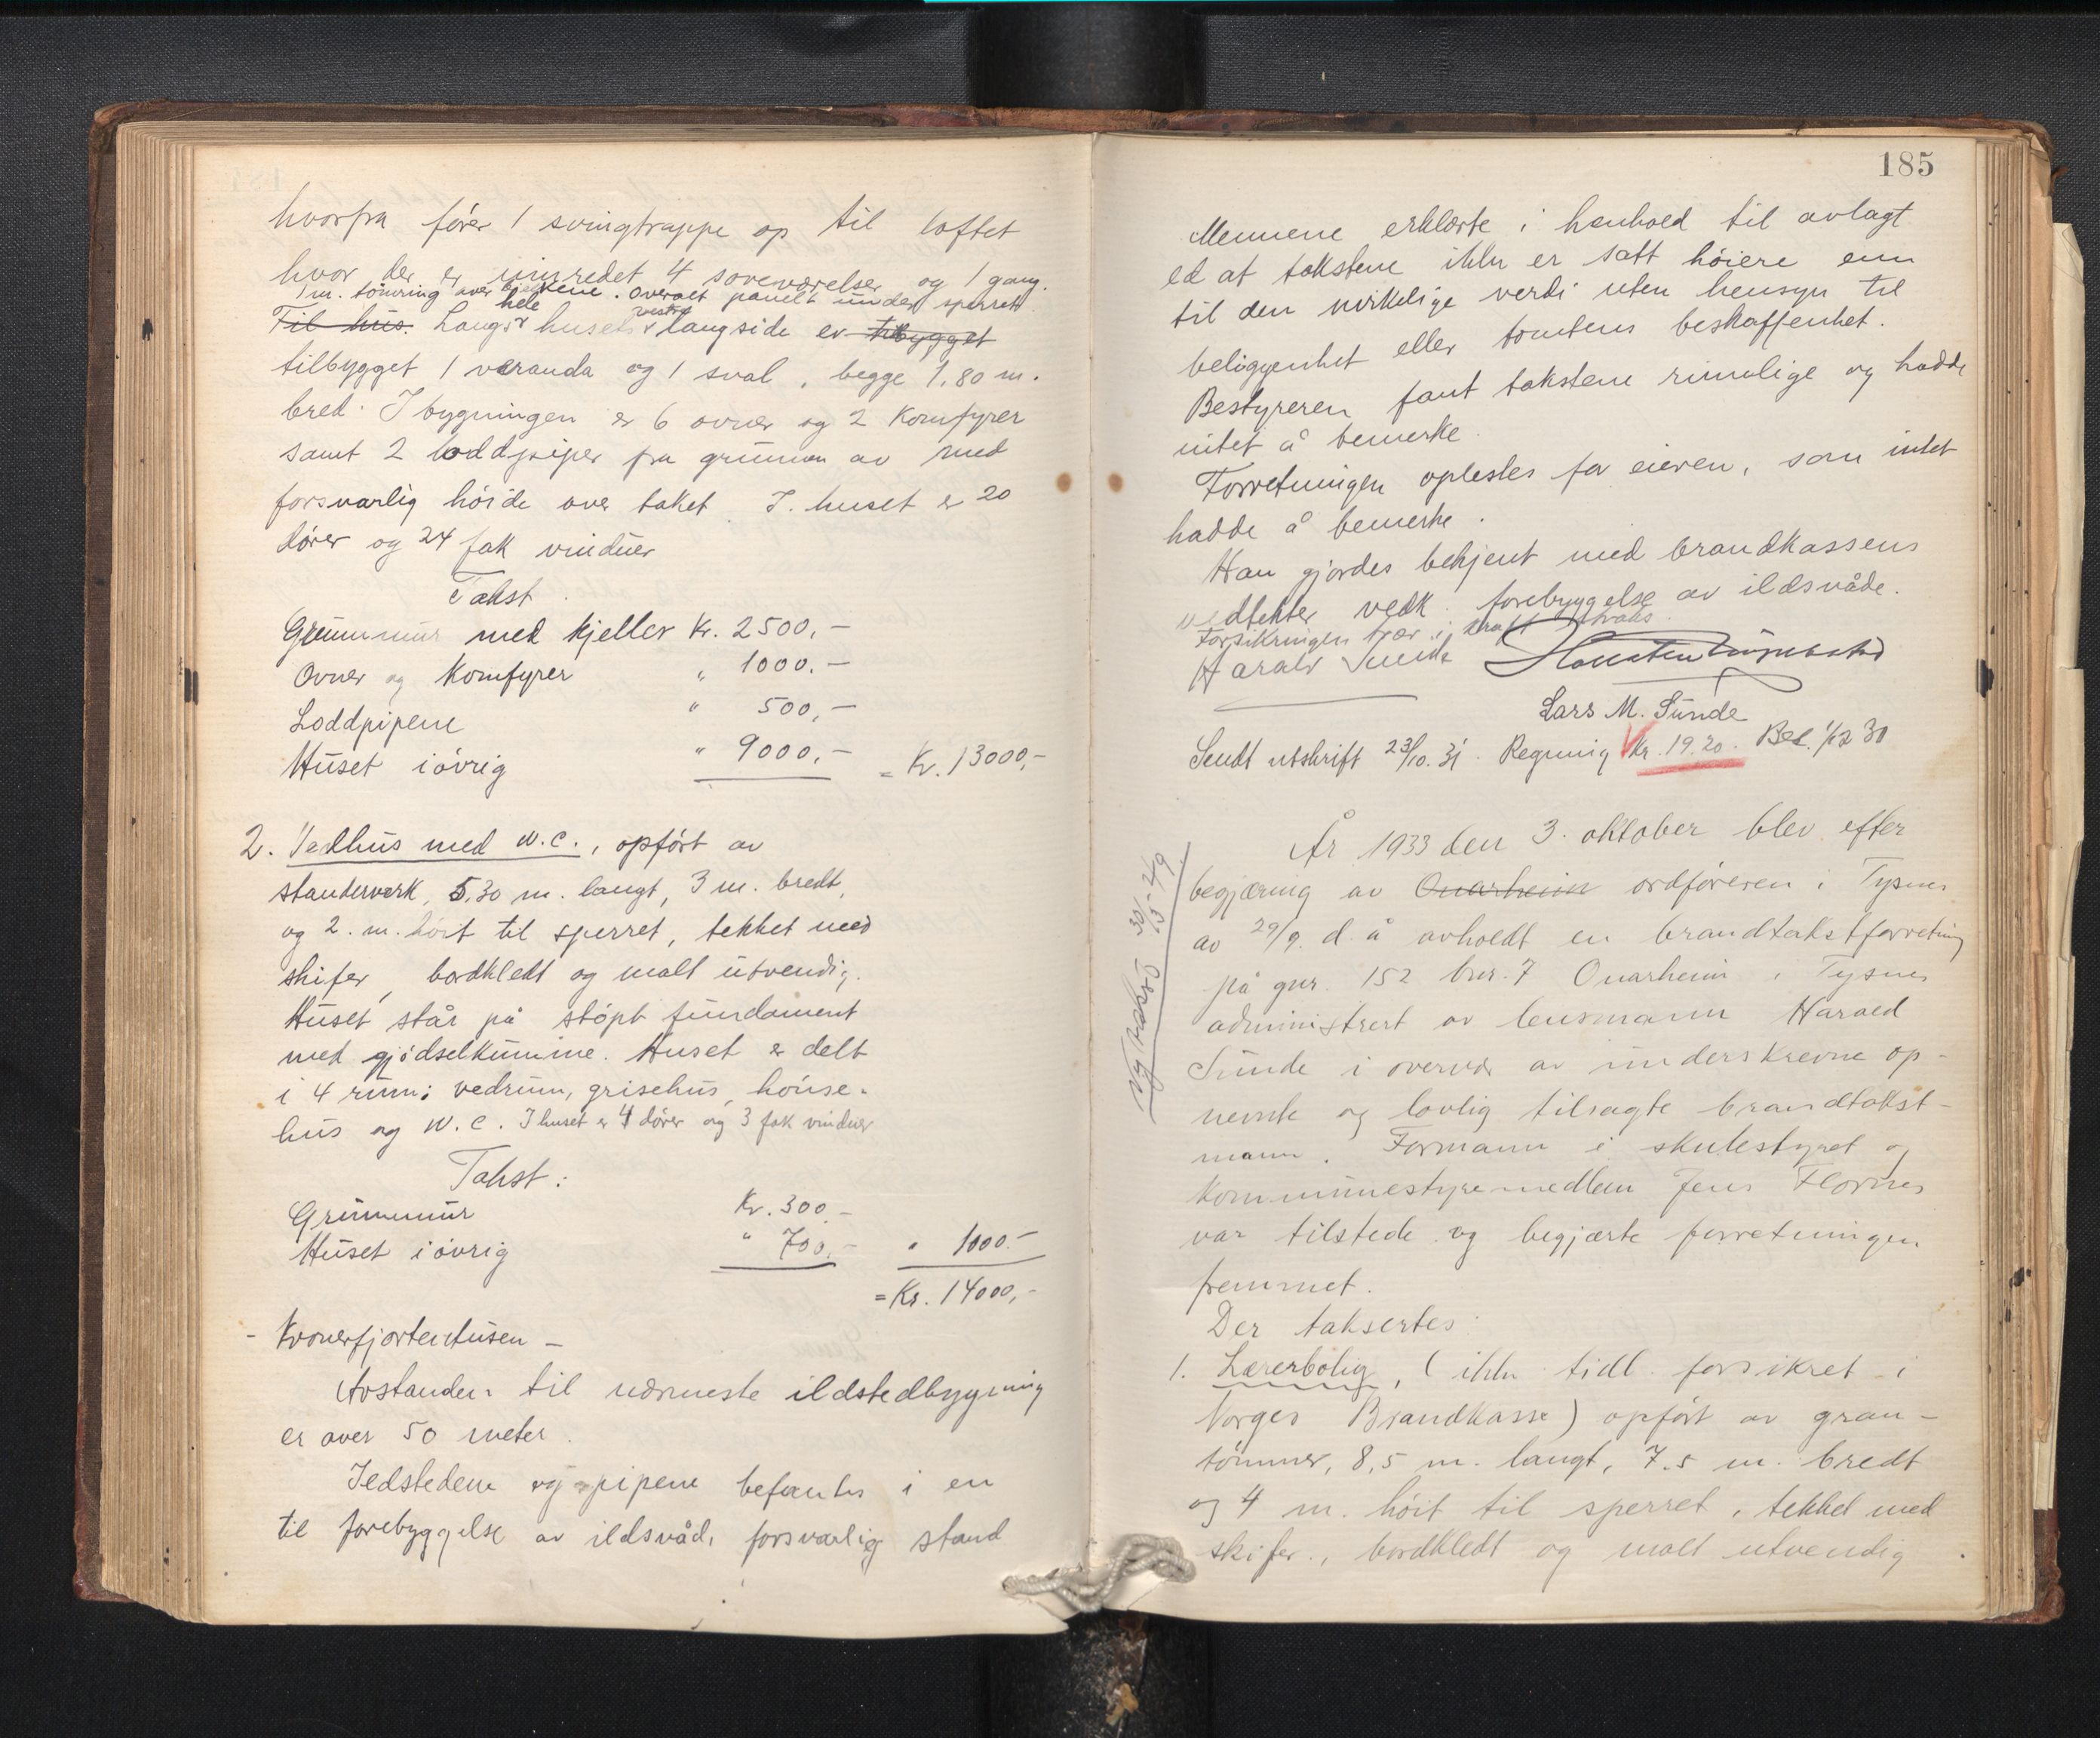 hvorfra fører 1 svingtrappe op til loftet
hvor der er innredet 4 soveværelser og 1 gang.
1 m. tømring over bjelkene. Overalt panelt under sperret.
Til hus. Langs hele husets vestre langside er tilbygget
tilbygget 1 veranda og 1 sval, begge 1,80 m.
bred. I bygningen er 6 ovner og 2 komfyrer
samt 2 loddpiper fra grunnen av med
forsvarlig høide over taket. I huset er 20
dører og 24 fak vinduer
Takst.
Grunnmur med kjeller Kr. 2500,-
Ovner og komfyrer " 1000.-
Loddpipene " 500,-
Huset iøvrig " 9000,- = Kr. 13000,-
2. Vedhus med W.C., opført av
standerverk, 5,30 m. langt, 3 m. bredt,
og 2. m. høit til sperret, tekket med
skifer, bordkledt og malt utvendig.
Huset står på støpt fundament
med gjødselkumme. Huset er delt
i 4 rum: vedrum, grisehus, hønse-
hus og W.C. I huset er 4 dører og 3 fak vinduer
Takst:
Grunnmur Kr. 300.-
Huset iøvrig " 700.- " 1000.-
= Kr. 14000,-
- Kronerfjortentusen -
Avstanden til nærmeste ildstedbygning
er over 50 meter.
Ildstedene og pipene befantes i en
til forebyggelse av ildsvåde forsvarlig stand
185
Mennene erklærte i henhold til avlagt
ed at takstene ikke er satt høiere enn
til den virkelige verdi uten hensyn til
beliggenhet eller tomtens beskaffenhet.
Bestyreren fant takstene rimelige og hadde
intet å bemerke.
Forretningen oplestes for eieren, som intet
hadde å bemerke.
Han gjordes bekjent med brandkassens
vedtekter vedk. forebyggelse av ildsvåde.
Forsikringen trær i kraft straks.
Harald Sunde
Lars M. Sunde
Sendt utskrift 23/10. 31. Regning Kr. 19.20. Bet. 1/12 30
År 1933 den 3. oktober blev efter
begjæring av Onarheim ordføreren i Tysnes
av 29/9. d. å avholdt en brandtakstforretning
på gnr. 152 bnr. 7 Onarheim i Tysnes
administrert av lensmann Harald
Sunde i overvær av underskrevne op-
nevnte og lovlig tilsagte brandtakst-
menn. Formann i skulestyret og
kommunestyremedlem Jens Flornes
var tilstede og begjærte forretningen
fremmet.
Der taksertes:
1. Lærerbolig, (ikke tidl. forsikret i
Norges Brandkasse) opført av gran-
tømmer, 8,5 m. langt, 7.5 m. bredt
og 4 m. høit til sperret, tekket med
skifer, bordkledt og malt utvendig
Ny takst 30/5-49